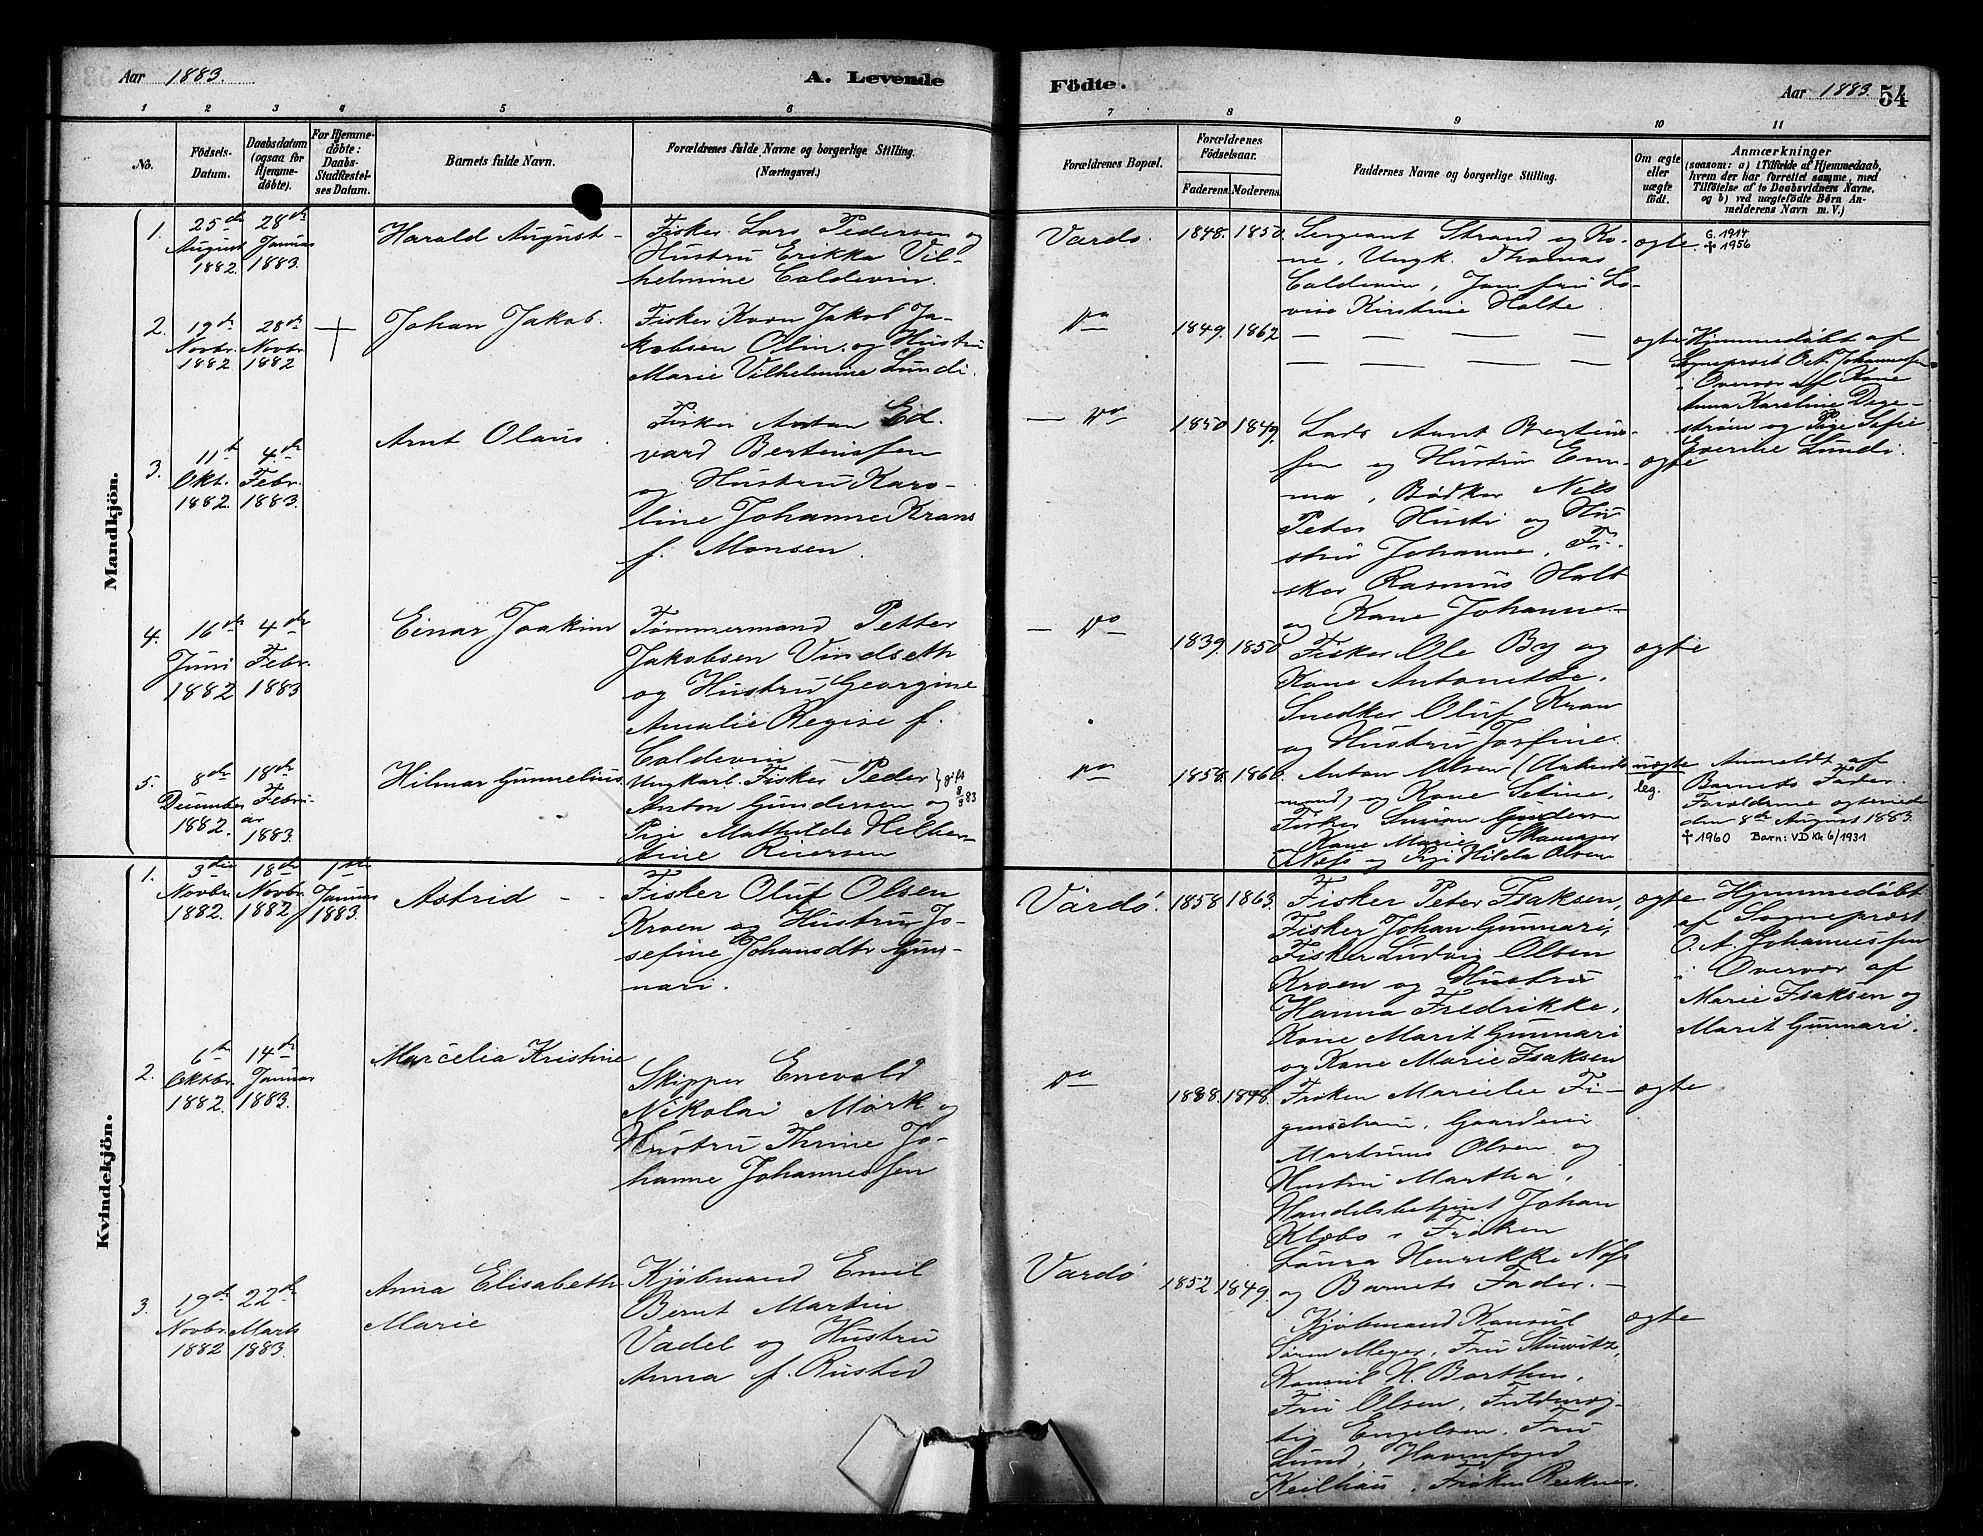 Aar 1883.
A. Levende
Födte.
Aar 1883. 54
1 2 3 4 5 6 7 8 9 10 11
No.
Födsels-
Datum.
Daabsdatum
(ogsaa for
Hjemme-
döbte).
For Hjemme-
döbte:
Daabs-
Stadfæstel-
ses Datum.
Barnets fulde Navn.
Forældrenes fulde Navne og borgerlige Stilling.
(Næringsvei.)
Forældrenes Bopæl.
Forældrenes
Födselsaar.
Faderens. Moderens.
Faddernes Navne og borgerlige Stilling.
Om ægte
eller
uægte
födt.
Anmærkninger
(saasom: a) i Tilfælde af Hjemmedaab,
hvem der har forrettet samme, med
Tilföielse af to Daabsvidners Navne,
og b) ved uægtefödte Børn An-
melderens Navn m. V.)
Mandkjön.
1.
25de
August
1882
28de
Januar
1883.
Harald August
Fisker Lars Pedersen og
Hustru Erikka Vil-
helmine Coldevin.
Vardø.
1848. 1850.
Sergeant Strand og Ko-
ne, Ungk. Thomas
Coldevin, Jomfru Lo-
vise Kirstine Holte
ægte
G. 1914
† 1956
2.
19de
Novbr.
1882
28de
Novbr.
1882
Johan Jakob.
Fisker Kvæn Jakob Ja-
kobsen Olin og Hustru
Marie Vilhelmine Lundi.
Do
1849. 1862
ægte
Hjemmedøbt af
Sogneprest O. A. Johannessen
i Overvær af Kone
Anna Kareline Dege-
strøm og Pige Sofie
Lundi.
3.
11te
Oktr.
1882.
4de
Febr.
1883.
Arnt Olaus.
Fisker Anton Ed-
vard Bertinssen
og Hustru Karo-
line Johanne Krans
f. Monsen.
Do
1850 1849.
Lods Arnt Bertins-
sen og Hustru Em-
ma, Bødker Nils
Peter Husti og Hu-
stru Johanne, Fi-
sker Rasmus Holt
og Kone Johanne.
ægte
4.
16de
Juni
1882
4de
Febr.
1883
Einar Joakim
Tømmermand Petter
Jakobsen Vindseth
og Hustru Georgine
Amalie Regise f.
Coldevin
Do
1839. 1850
Fisker Ole By og
Kone Antonette,
Snedker Oluf Kran
og Hustru Josefine.
ægte
5.
8de
December
1882.
18de
Febru-
ar
1883.
Hilmar Gunnelius
Ungkarl Fisker Peder
Anton Gundersen og
Pige Mathilde Helber-
tine Riersen
gift
8/8 83
Do
1858. 1860.
Anton Olsen (Arbeids-
mand) og Kone Serine,
Fisker Simon Gundersen
og Kone Marie
Næss og Pige Hilda Olsen
uægte
leg.
Anmeldt af
Barnets Fader.
Forældrene ægteviede
den 8de August 1883.
† 1960 Barn: V.D Kk 6/1931
Kvindekjön.
1.
3die
Novbr.
1882.
18de
Novbr.
1882
1ste
Januar
1883.
Astrid
Fisker Oluf Olsen
Kroen og Hustru Jo-
sefine Johansdtr Gun-
nari.
Vardø.
1858 1863.
Fisker Peter Isaksen,
Fisker Johan Gunnari,
Fisker Ludvig Olsen
Kroen og Hustru
Hanna Fredrikke,
Kone Marit Gunnari
og Kone Marie Isaksen
ægte
Hjemmedøbt
af Sogneprest
O. A. Johannessen
i Overvær af
Marie Isaksen og
Marit Gunnari.
2.
6te
Oktbr.
1882.
14de
Januar
1883.
Marcelia Kristine
Skipper Enevold
Nikolai Mørk og
Hustru Thrine Jo-
hanne Johannessen
Do
1838. 1848.
Frøken Marcelie
Gaardeier
Martinus Olsen og
Hustru Martha,
Handelsbetjent Johan
Klæbo, Frøken
Laura Henrikke Næss
og Barnets Fader.
ægte
3.
19de
Novbr.
1882
22de
Marts
1883.
Anna Elisabeth
Marie
Kjøbmand Emil
Bernt Martin
Vadel og Hustru
Anna f. Rustad
Vardø
1852 1849.
Kjøbmand Konsul
Søren Meyer, Fru
Konsul H. Barthen,
Fru Olsen, Fuldmæg-
tig Engelsen, Fru
Lund, Havnefoged
Keilhau, Frøken
ægte